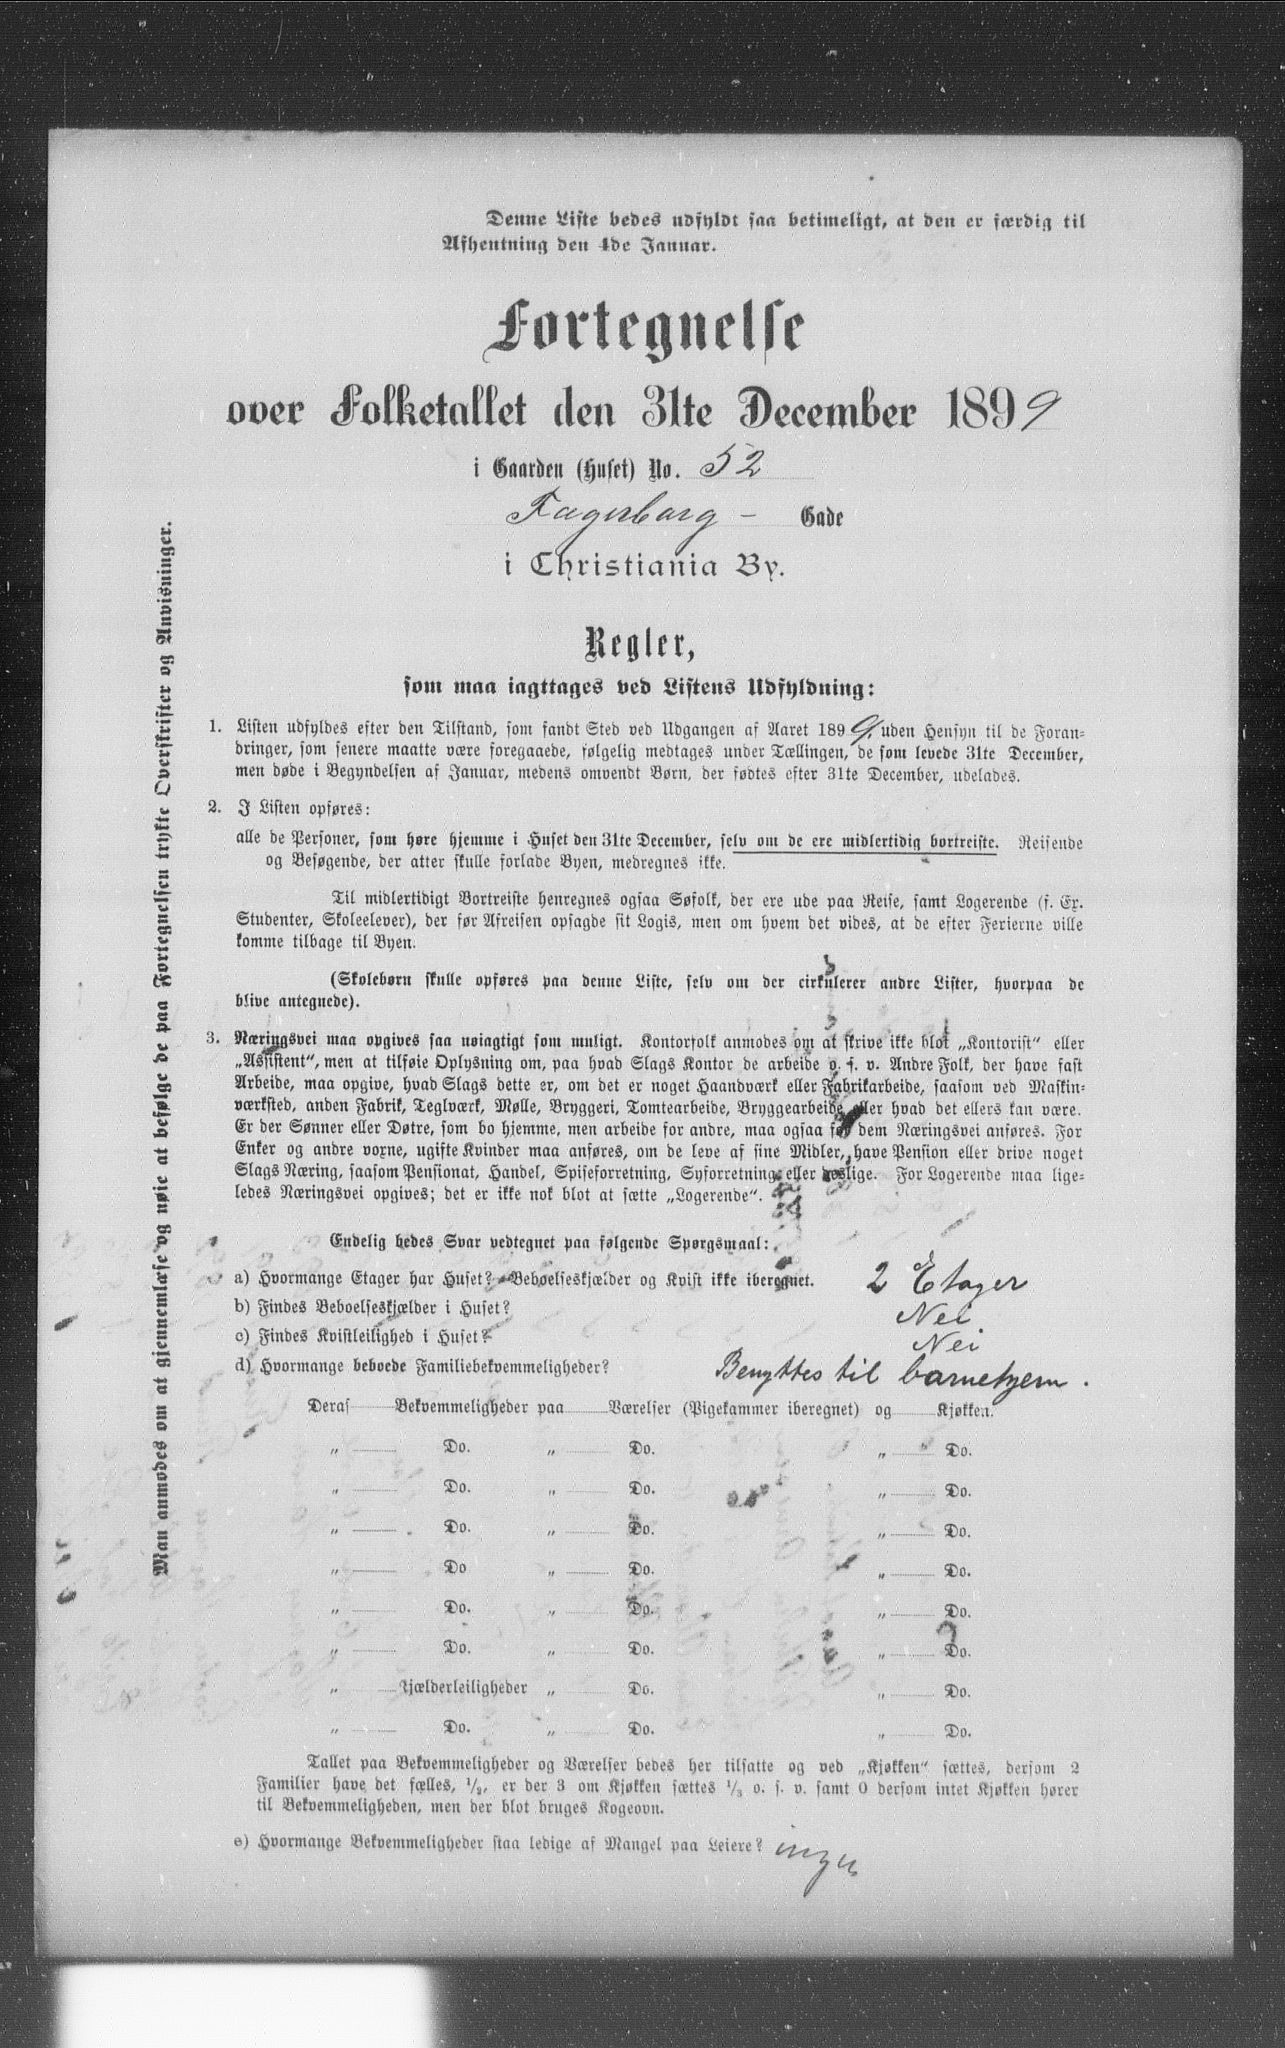 Denne Liste bedes udfyldt saa betimeligt, at den er færdig til
Afhentning den 4de Januar.
Fortegnelse
over Folketallet den 31te December 1899
i Gaarden (Huset) No. 52
Fagerborg - Gade
i Christiania By.
Regler,
som maa iagttages ved Listens Udfyldning:
1. Listen udfyldes efter den Tilstand, som fandt Sted ved Udgangen af Aaret 1899, uden Hensyn til de Foran-
dringer, som senere maatte være foregaaede, følgelig medtages under Tællingen, de som levede 31te December,
men døde i Begyndelsen af Januar, medens omvendt Børn, der fødtes efter 31te December, udelades.
2. I Listen opføres:
alle de Personer, som høre hjemme i Huset den 31te December, selv om de ere midlertidig bortreiste. Reisende
og Besøgende, der atter skulle forlade Byen, medregnes ikke.
Til midlertidigt Bortreiste henregnes ogsaa Søfolk, der ere ude paa Reise, samt Logerende (f. Ex.
Studenter, Skoleelever), der før Afreisen opsagde sit Logis, men om hvem det vides, at de efter Ferierne ville
komme tilbage til Byen.
(Skolebørn skulle opføres paa denne Liste, selv om der cirkulerer andre Lister, hvorpaa de
blive antegnede).
3. Næringsvei maa opgives saa nøiagtigt som muligt. Kontorfolk anmodes om at skrive ikke blot „Kontorist“ eller
„Assistent“, men at tilføie Oplysning om, paa hvad Slags Kontor de arbeide o. s. v. Andre Folk, der have fast
Arbeide, maa opgive, hvad Slags dette er, om det er noget Haandværk eller Fabrikarbeide, saasom ved Maskin-
værksted, anden Fabrik, Teglværk, Mølle, Bryggeri, Tomtearbeide, Bryggearbeide eller hvad det ellers kan være.
Er der Sønner eller Døtre, som bo hjemme, men arbeide for andre, maa ogsaa for dem Næringsvei anføres. For
Enker og andre voxne, ugifte Kvinder maa anføres, om de leve af sine Midler, have Pension eller drive noget
Slags Næring, saasom Pensionat, Handel, Spiseforretning, Syforretning eller deslige. For Logerende maa lige-
ledes Næringsvei opgives; det er ikke nok blot at sætte „Logerende“.
Endelig bedes Svar vedtegnet paa følgende Spørgsmaal:
a) Hvormange Etager har Huset? Beboelseskjælder og Kvist ikke iberegnet. 2 Etager
b) Findes Beboelseskjælder i Huset? Nei
c) Findes Kvistleilighed i Huset? Nei
d) Hvormange beboede Familiebekvemmeligheder? Benyttes til barnehjem.
Deraf Bekvemmeligheder paa Værelser (Pigekammer iberegnet) og Kjøkken.
„ Do. „ Do. „ Do.
„ Do. „ Do. „ Do.
„ Do. „ Do. „ Do.
„ Do „ Do. „ Do.
„ Do. „ Do. „ Do.
„ Do. „ Do. „ Do.
„ Kjælderleiligheder „ Do. „ Do.
„ Do. „ Do. „ Do.
Tallet paa Bekvemmeligheder og Værelser bedes her tilsatte og ved „Kjøkken“ sættes, dersom 2
Familier have det fælles, 1/2, er der 3 om Kjøkken sættes 1/3 o. s. v. samt 0 dersom intet Kjøkken hører
til Bekvemmeligheden, men der blot bruges Kogeovn.
e) Hvormange Bekvemmeligheder staa ledige af Mangel paa Leiere? ingen
Man anmodes om at gjennemlæse og nøie at befølge de paa Fortegnelsen trykte Overskrifter og Anvisninger.